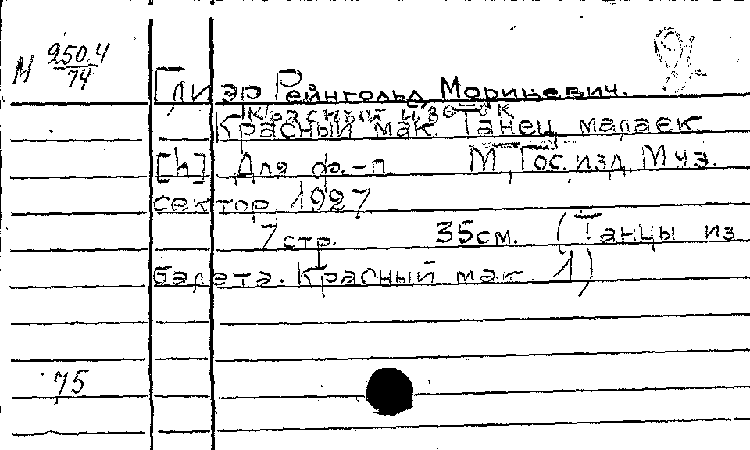 М 250.4
74
Глиэр Рейнгольд Морицевич.
Красный цветок
Красный мак. Танец малаек
[h] Для ф.-п. М., Гос. изд. Муз.
сектор 1927
7 стр. 35 см. (Танцы из
балета. Красный мак. 1)
75